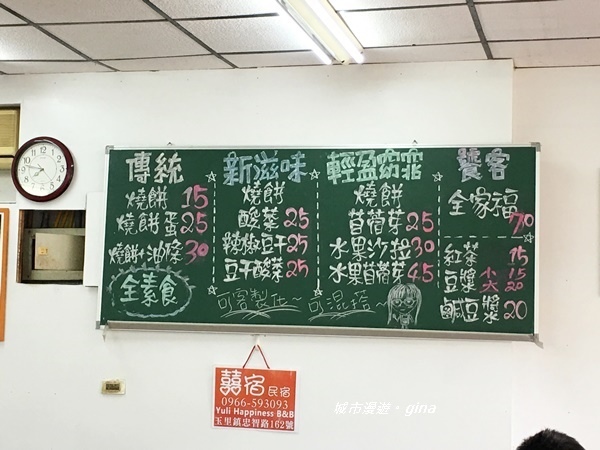 傳統
燒餅 15
燒餅蛋 25
燒餅+油條 30
全素食
新滋味
燒餅
酸菜 25
辣椒豆干 25
豆干酸菜 25
可客製化~可混搭
輕盈窈窕
燒餅
苜蓿芽 25
水果沙拉 30
水果苜蓿芽 45
饕客
全家福
70
紅茶 15
豆漿 小 15
大 20
鹹豆漿 20
囍宿民宿
0966-593093
Yuli Happiness B&B
玉里鎮忠智路162號
城市漫遊。gina